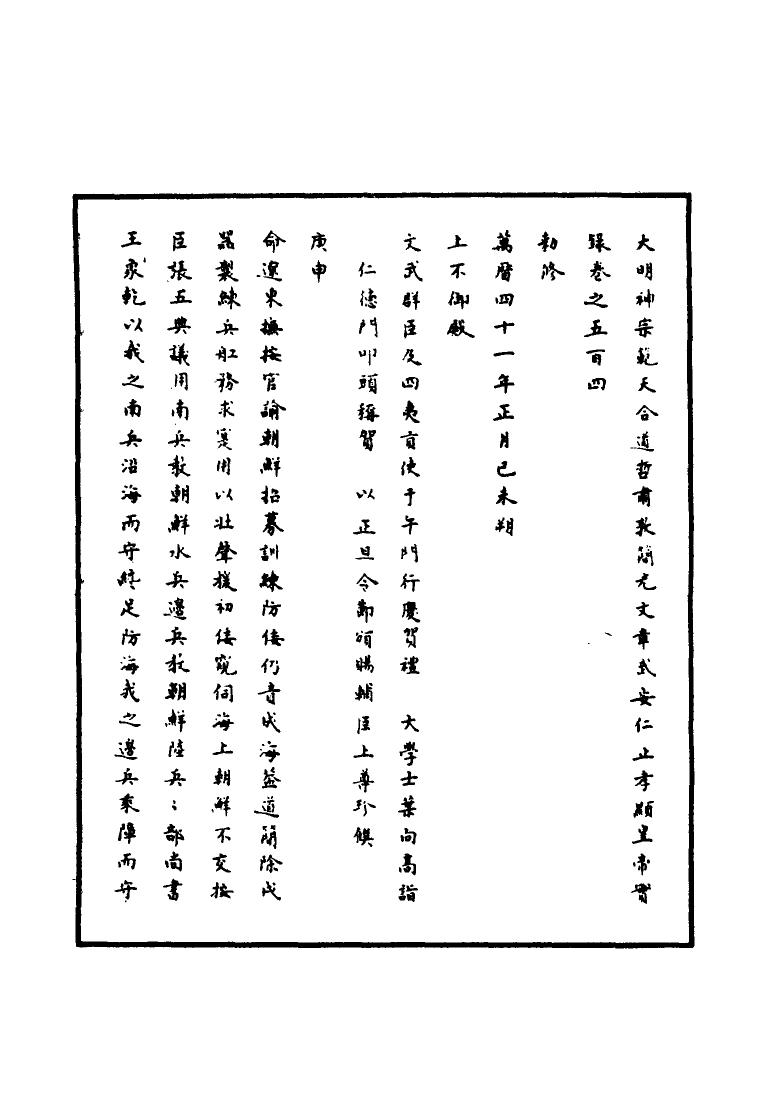 大明神宗範天合道哲肅敦簡光文章武安仁止孝顯皇帝實
錄卷之五百四
勅修
萬曆四十一年正月己未朔
上不御殿
文武群臣及四夷貢使于午門行慶賀禮　大學士葉向高詣
仁德門叩頭稱賀　以正旦令節頒賜輔臣上尊珍饌
庚申
命遼東撫按官諭朝鮮招募訓練防倭仍責成海蓋道簡除戎
器製練兵舡務求實用以壯聲援初倭窺伺海上朝鮮不交按
臣張五典議用南兵教朝鮮水兵邊兵教朝鮮陸兵：部尚書
王象乾以我之南兵沿海而守終足防海我之邊兵乘障而守